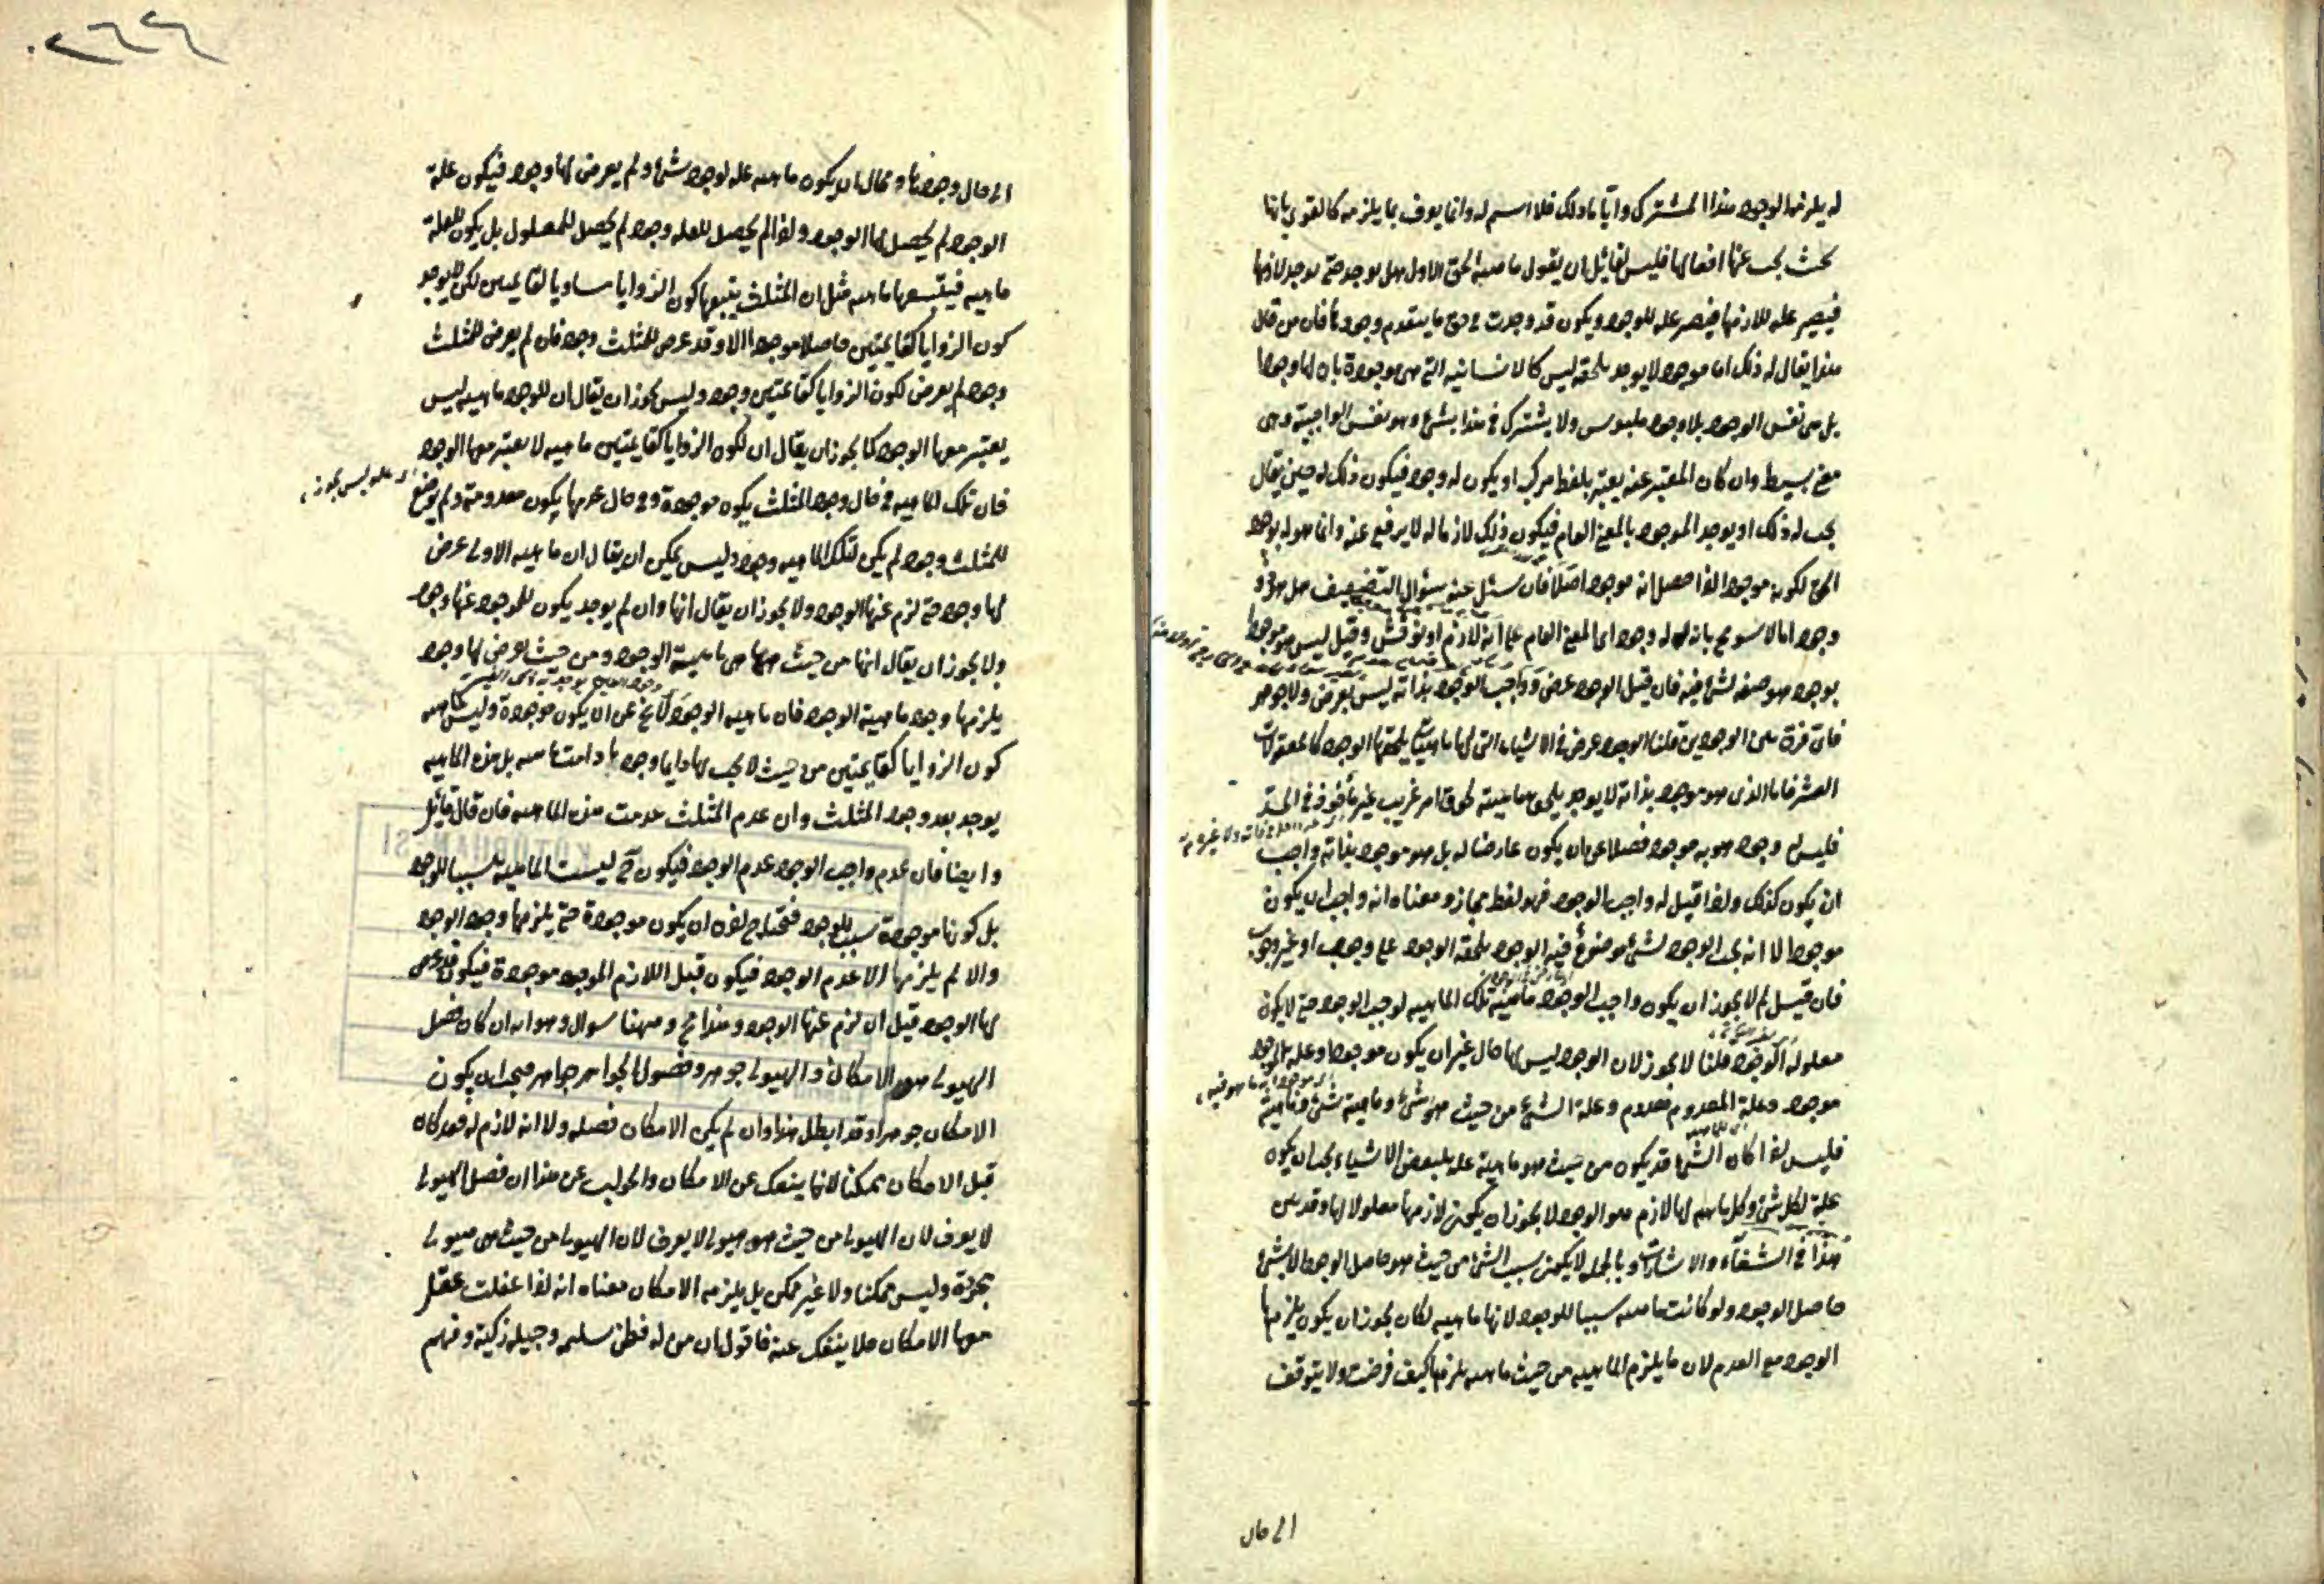 له يلزمها الوجود هذا المشترك وايا ما ذلك فلا اسم له وانما يعرف بما يلزمه كالقوى بانها
بحيث يجب عنها افعالها فليس لقائل ان يقول ماهية الحق الاول هل يوجد حتى يوجد لازمها
فيصير علة للازمها فيصير علة للوجود ويكون قد وجدت حتى ما يتقدم وجودها فان من قال
هذا يقال له ذلك اما موجود لا يوجد يلحقه ليس كالانسانية التي هي موجودة بان لها وجودا
بل هي نفس الوجود بلا وجود ملبوس ولا يشترك في هذا بشيء وهو نفس الواجبية وهي
معنى بسيط وان كان المعتبر عنه يعتبر بلفظ مركب او يكون له وجود فيكون ذلك له حين يقال
يجب له ذلك او يوجد الموجود بالمعنى العام فيكون ذلك لازما له لا يرفع عنه وانما هو له بوجود
الحق لكونه موجودا اذا حصل انه موجود اصلا فان سئل عنه سؤال التضعيف هل هو ذو
وجود اما لا سومح بانه له وجود اى المعنى العام على انه لازم او نوقش وقيل ليس هو موجودا
بوجود هو صفة لشيء فيه فان قيل الوجود عرض وواجب الوجود بذاته ليس بعرض ولا جوهر
فاى فرق بين الوجودين قلنا الوجود عرض في الاشياء التي لها ماهيات يلحقها الوجود كالمقولات
العشر فاما الذى هو موجود بذاته لا يوجد يلحق ماهيته لحوق امر غريب غير ماخوذ في الحد
فليس له وجود هو به موجود فضلا عن ان يكون عارضا له بل هو موجود بذاته واجب
ان يكون كذلك واذا قيل له واجب الوجود فهو لفظ مجاز ومعناه انه واجب ان يكون
موجودا لا انه يجب الوجود لشيء موضوع فيه الوجود يلحقه الوجود على وجوب او غير وجوب
فان قيل لم لا يجوز ان يكون واجب الوجود ماهية تلك الماهية لوجب الوجود حتى لا يكون
معلولة الوجود قلنا لا يجوز لان الوجود ليس لها حال غير ان يكون موجودا وعلة الموجود
موجود وعلة المعدوم معدوم وعلة الشيء من حيث هو شيء وماهية شيء وماهية
فليس اذا كان الشيء قد يكون من حيث هو ماهية علة لبعض الاشياء يجب ان يكون
علة لكل شيء وكل ماهية لها لازم هو الوجود لا يجوز ان يكون لازمها معلولا لها وقد بين
هذا في الشفاء والاشارات وبالجملة لا يكون سبب الشيء من حيث هو حاصل الوجود الا شيء
حاصل الوجود ولو كانت ماهية سببا للوجود لانها ماهية لكان يجوز ان يكون يلزمها
الوجود مع العدم لان ما يلزم الماهية من حيث ماهية يلزمها كيف فرضت ولا يتوقف
الى حال
الى حال وجودها ومحال ان يكون ماهية علة لوجود شيء ولم يعرض لها وجود فيكون علة
الوجود لم يحصل لها الوجود واذا لم يحصل للعلة وجود لم يحصل للمعلول بل يكون للعلة
ماهية فيتبعها ماهية مثل ان المثلث يتبعها كون الزوايا مساويا لقائمتين لكن لا يوجد
كون الزوايا كقائمتين حاصلا موجودا الا وقد عرض للمثلث وجود فان لم يعرض للمثلث
وجود لم يعرض لكون الزوايا كقائمتين وجود وليس يجوز ان يقال ان للوجود ماهية ليس
يعتبر معها الوجود كما يجوز ان يقال ان لكون الزوايا كقائمتين ماهية لا يعتبر معها الوجود
فان تلك الماهية في حال وجود المثلث يكون موجودة وفي حال عدمها يكون معدومة ولم يوضع
للمثلث وجود لم يكن لتلك الماهية وجود وليس يمكن ان يقال ان ماهية الاولى عرض
لها وجود حتى لزم عنها الوجود ولا يجوز ان يقال انها وان لم يوجد يكون للوجود عنها وجود
ولا يجوز ان يقال انها من حيث هي ماهية الوجود ومن حيث يعرض لها وجود
يلزمها وجود ماهية الوجود فان ماهية الوجود لا يخ عن ان يكون موجودة وليس كماهية
كون الزوايا كقائمتين من حيث لا يجب لها دايما وجود ما دامت ماهية بل هذه الماهية
يوجد بعد وجود المثلث وان عدم المثلث عدمت هذه الماهية فان قال قائل
وايضا فان عدم واجب الوجود عدم الوجود فيكون ح ليست الماهية سببا للوجود
بل كونها موجودة سبب للوجود فتحتاج اذن ان يكون موجودة حتى يلزمها وجود الوجود
والا لم يلزمها الا عدم الوجود فيكون قبل اللازم الموجود موجودة فيكون قد عرض
لها الوجود قبل ان لزم عنها الوجود وهذا مح وههنا سوال وهو انه ان كان فصل
الهيولى هو الامكان والهيولى جوهر وفصول الجواهر جواهر فيجب ان يكون
الامكان جوهرا وقد ابطل هذا وان لم يكن الامكان فصله ولا انه لازم له فقد كان
قبل الامكان ممكنا لانها ينفك عن الامكان والجواب عن هذا ان فصل الهيولى
لا يعرف لان الهيولى من حيث هو هيولى لا يعرف لان الهيولى من حيث هي هيولى
مجردة وليس ممكنا ولا غير ممكن بل يلزمه الامكان معناه انه اذا عقلت عقل
معها الامكان فلا ينفك عنه فاقول ان من له فطن سليمه وجبله زكية وفهم